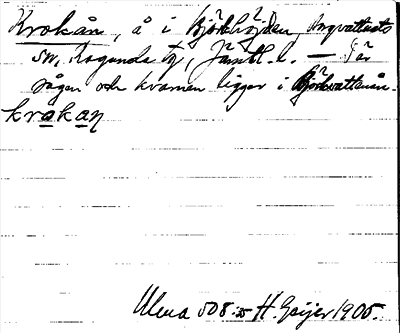 Krokån, å i Björkhöjden, Borgvattnets
sn, Ragunda tg, Jämtl. l. — I ån
sågen och kvarnen ligger i Björkvattenån.
krokan
Ulma 508:25 H. Geijer 1905.